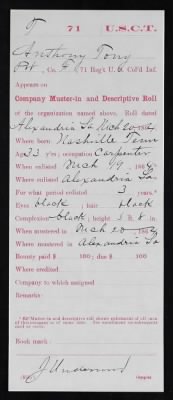 T | 71 | U.S.C.T.
Anthony Tony
Pvt, Co. E, 71 Reg't U. S. Col'd Inf.
Appears on
Company Muster-in and Descriptive Roll
of the organization named above. Roll dated
Alexandria La Mch 20, 1864.
Where born Nashville Tenn
Age 23 y'rs; occupation Carpenter
When enlisted Mch 19, 1864.
Where enlisted Alexandria La.
For what period enlisted 3 years.*
Eyes black, hair black
Complexion black; height 5 ft. 8 in.
When mustered in Mch 20, 1864
Where mustered in Alexandria La
Bounty paid $ 100; due $ 100
Where credited
Company to which assigned
Remarks:
Book mark:
J Underwood